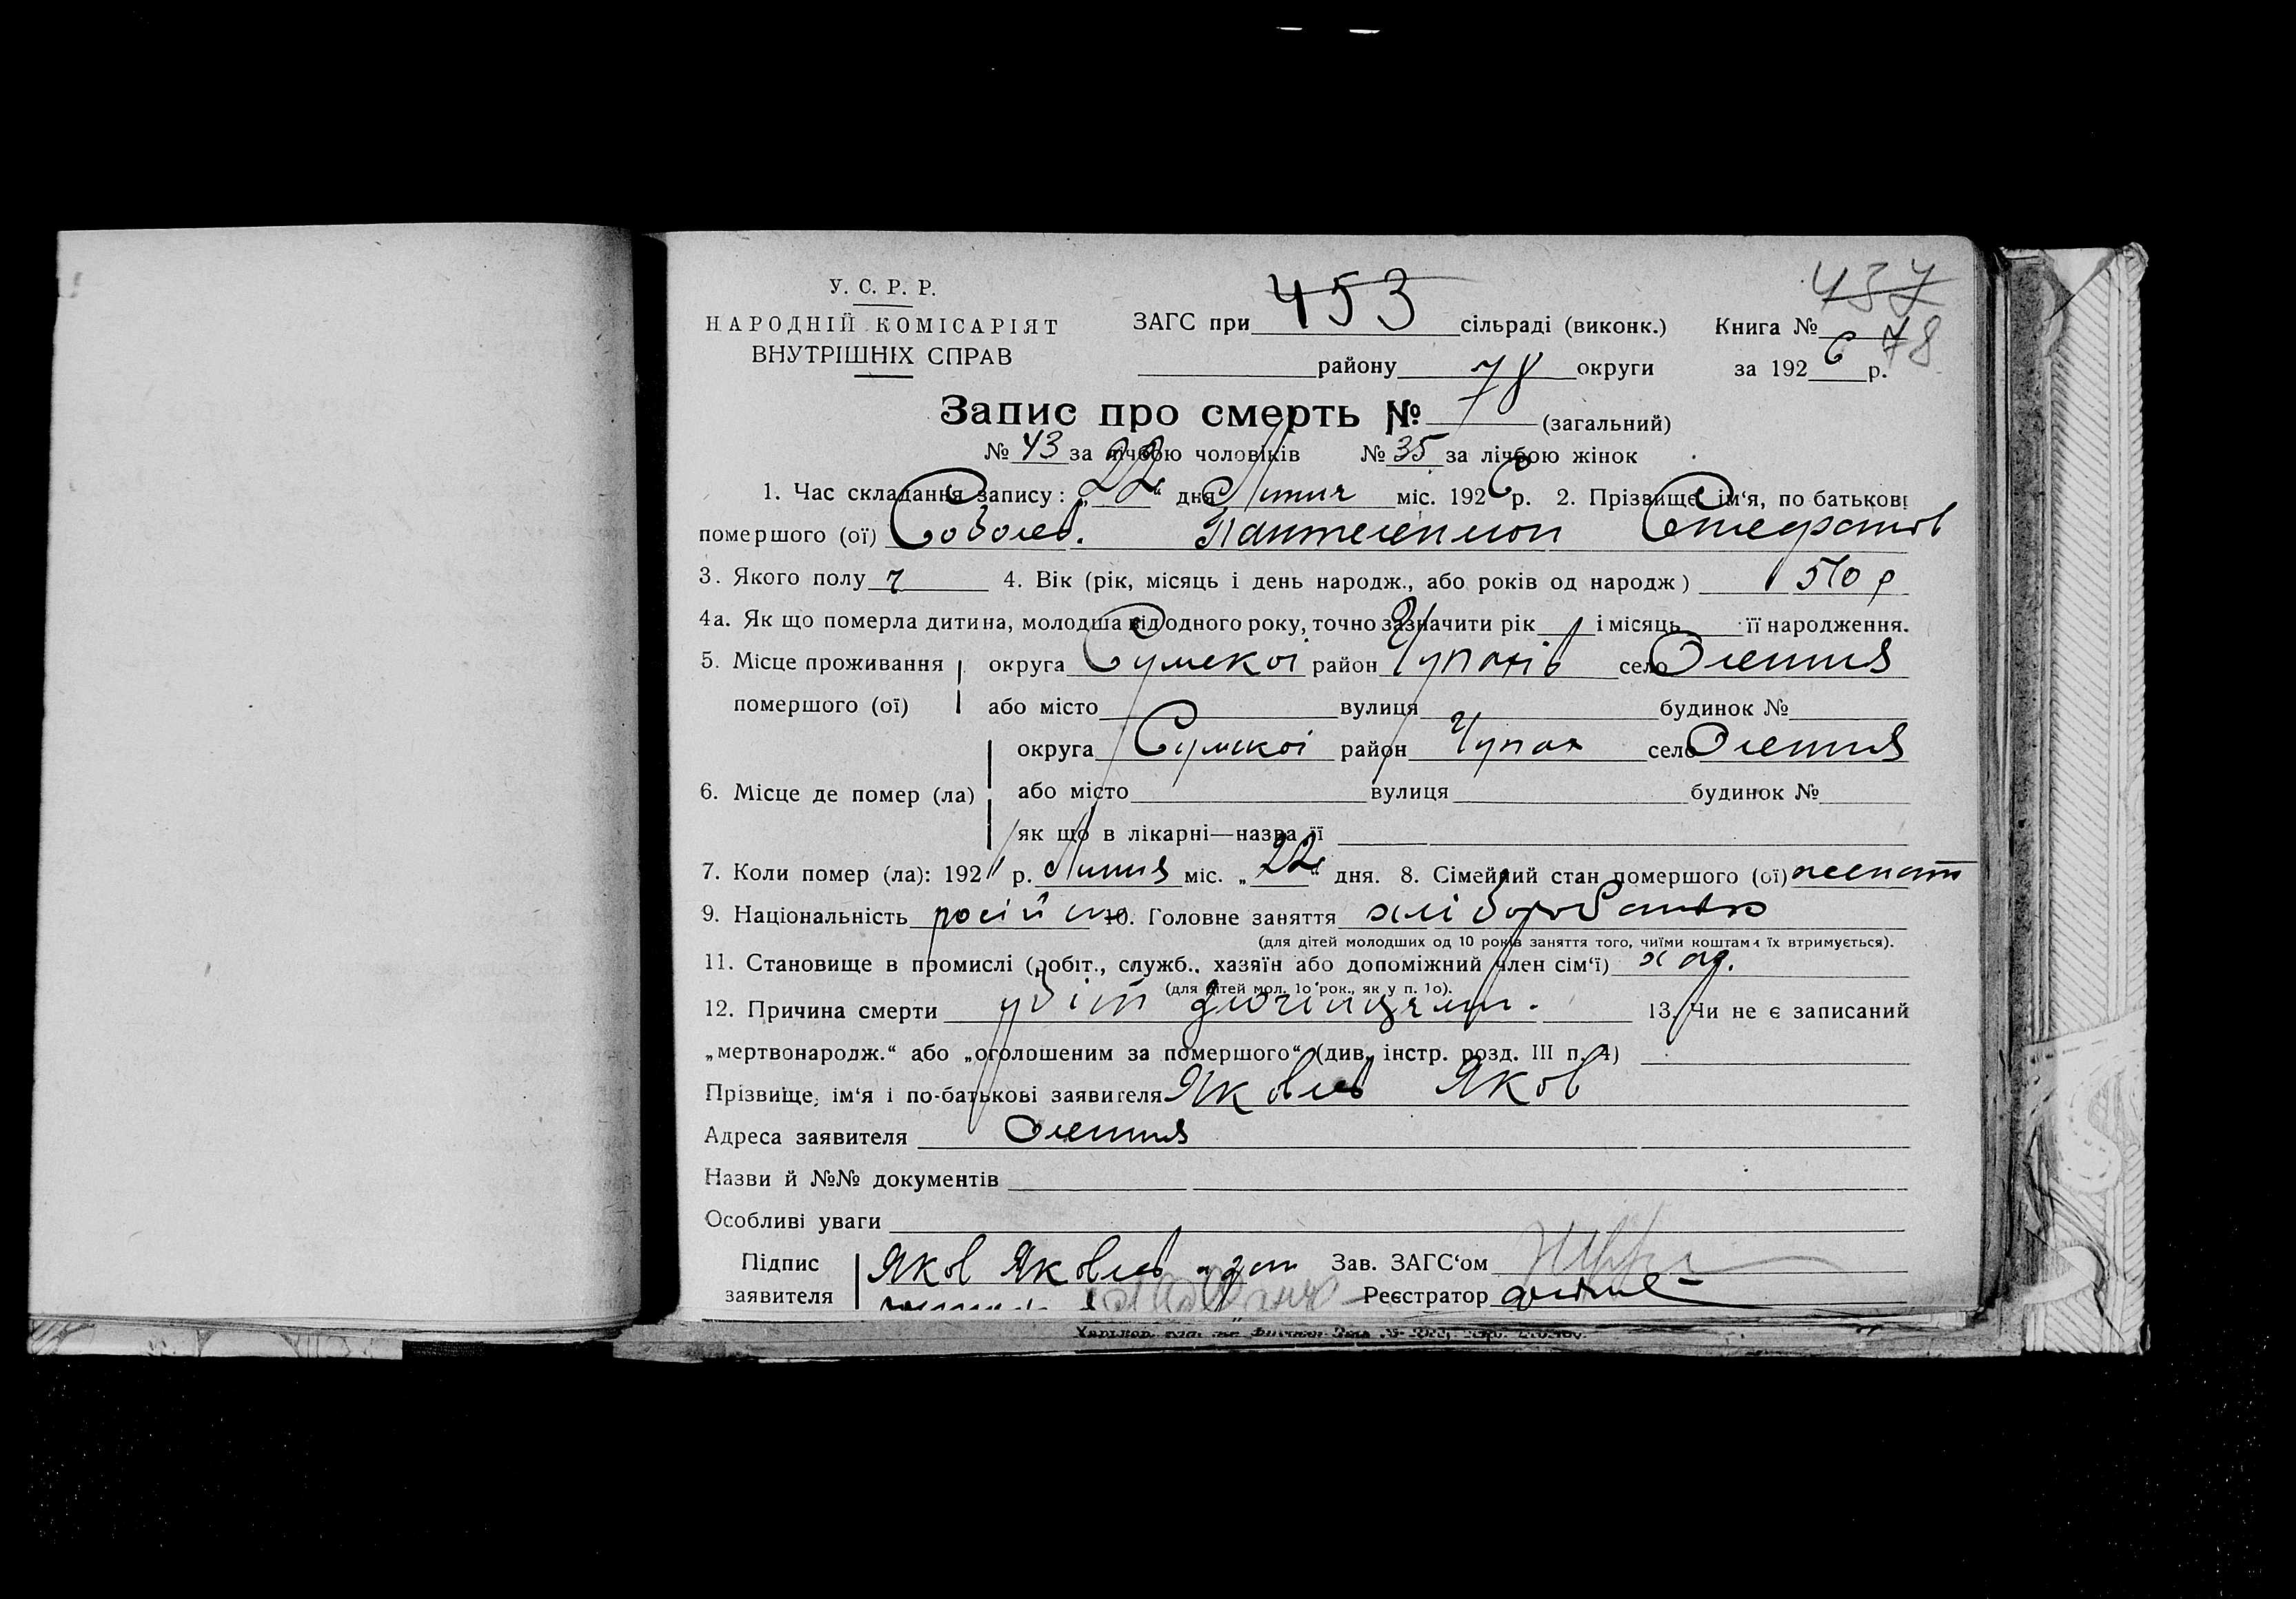 У. С. Р. Р.
НАРОДНІЙ КОМІСАРІЯТ
ВНУТРІШНІХ СПРАВ
ЗАГС при 453 сільраді (виконк.) Книга № 437
78
району 78 округи за 1926 р.
Запис про смерть № (загальний)
№ 43 за лічбою чоловіків № 35 за лічбою жінок
1. Час складання запису: „22“ дня Липня міс. 1926 р. 2. Прізвище, ім‘я, по батькові
помершого (ої) Соболев. Пантелеймон Стефанов
3. Якого полу ч 4. Вік (рік, місяць і день народж., або років од народж) 50 р
4а. Як що померла дитина, молодша від одного року, точно зазначити рік і місяць її народження.
5. Місце проживання округа Сумскої район Чупахів село Олешня
помершого (ої) або місто вулиця будинок №
округа Сумскої район Чупах село Олешня
6. Місце де помер (ла) або місто вулиця будинок №
як що в лікарні—назва її
7. Коли помер (ла): 192 р. Липня міс. „22“ дня. 8. Сімейний стан помершого (ої)
9. Національність 10. Головне заняття
(для дітей молодших од 10 років заняття того, чиїми коштами їх втримується).
11. Становище в промислі (робіт., служб., хазяїн або допоміжний член сім‘ї)
(для дітей мол. 1о рок., як у п. 1о).
12. Причина смерти убит 13. Чи не є записаний
„мертвонародж.“ або „оголошеним за помершого“ (див. інстр. розд. III п. 4)
Прізвище, ім‘я і по-батькові заявителя Яковлев Яков
Адреса заявителя Олешня
Назви й №№ документів
Особливі уваги
Підпис Яков Яковлев Зав. ЗАГС‘ом
заявителя Реєстратор